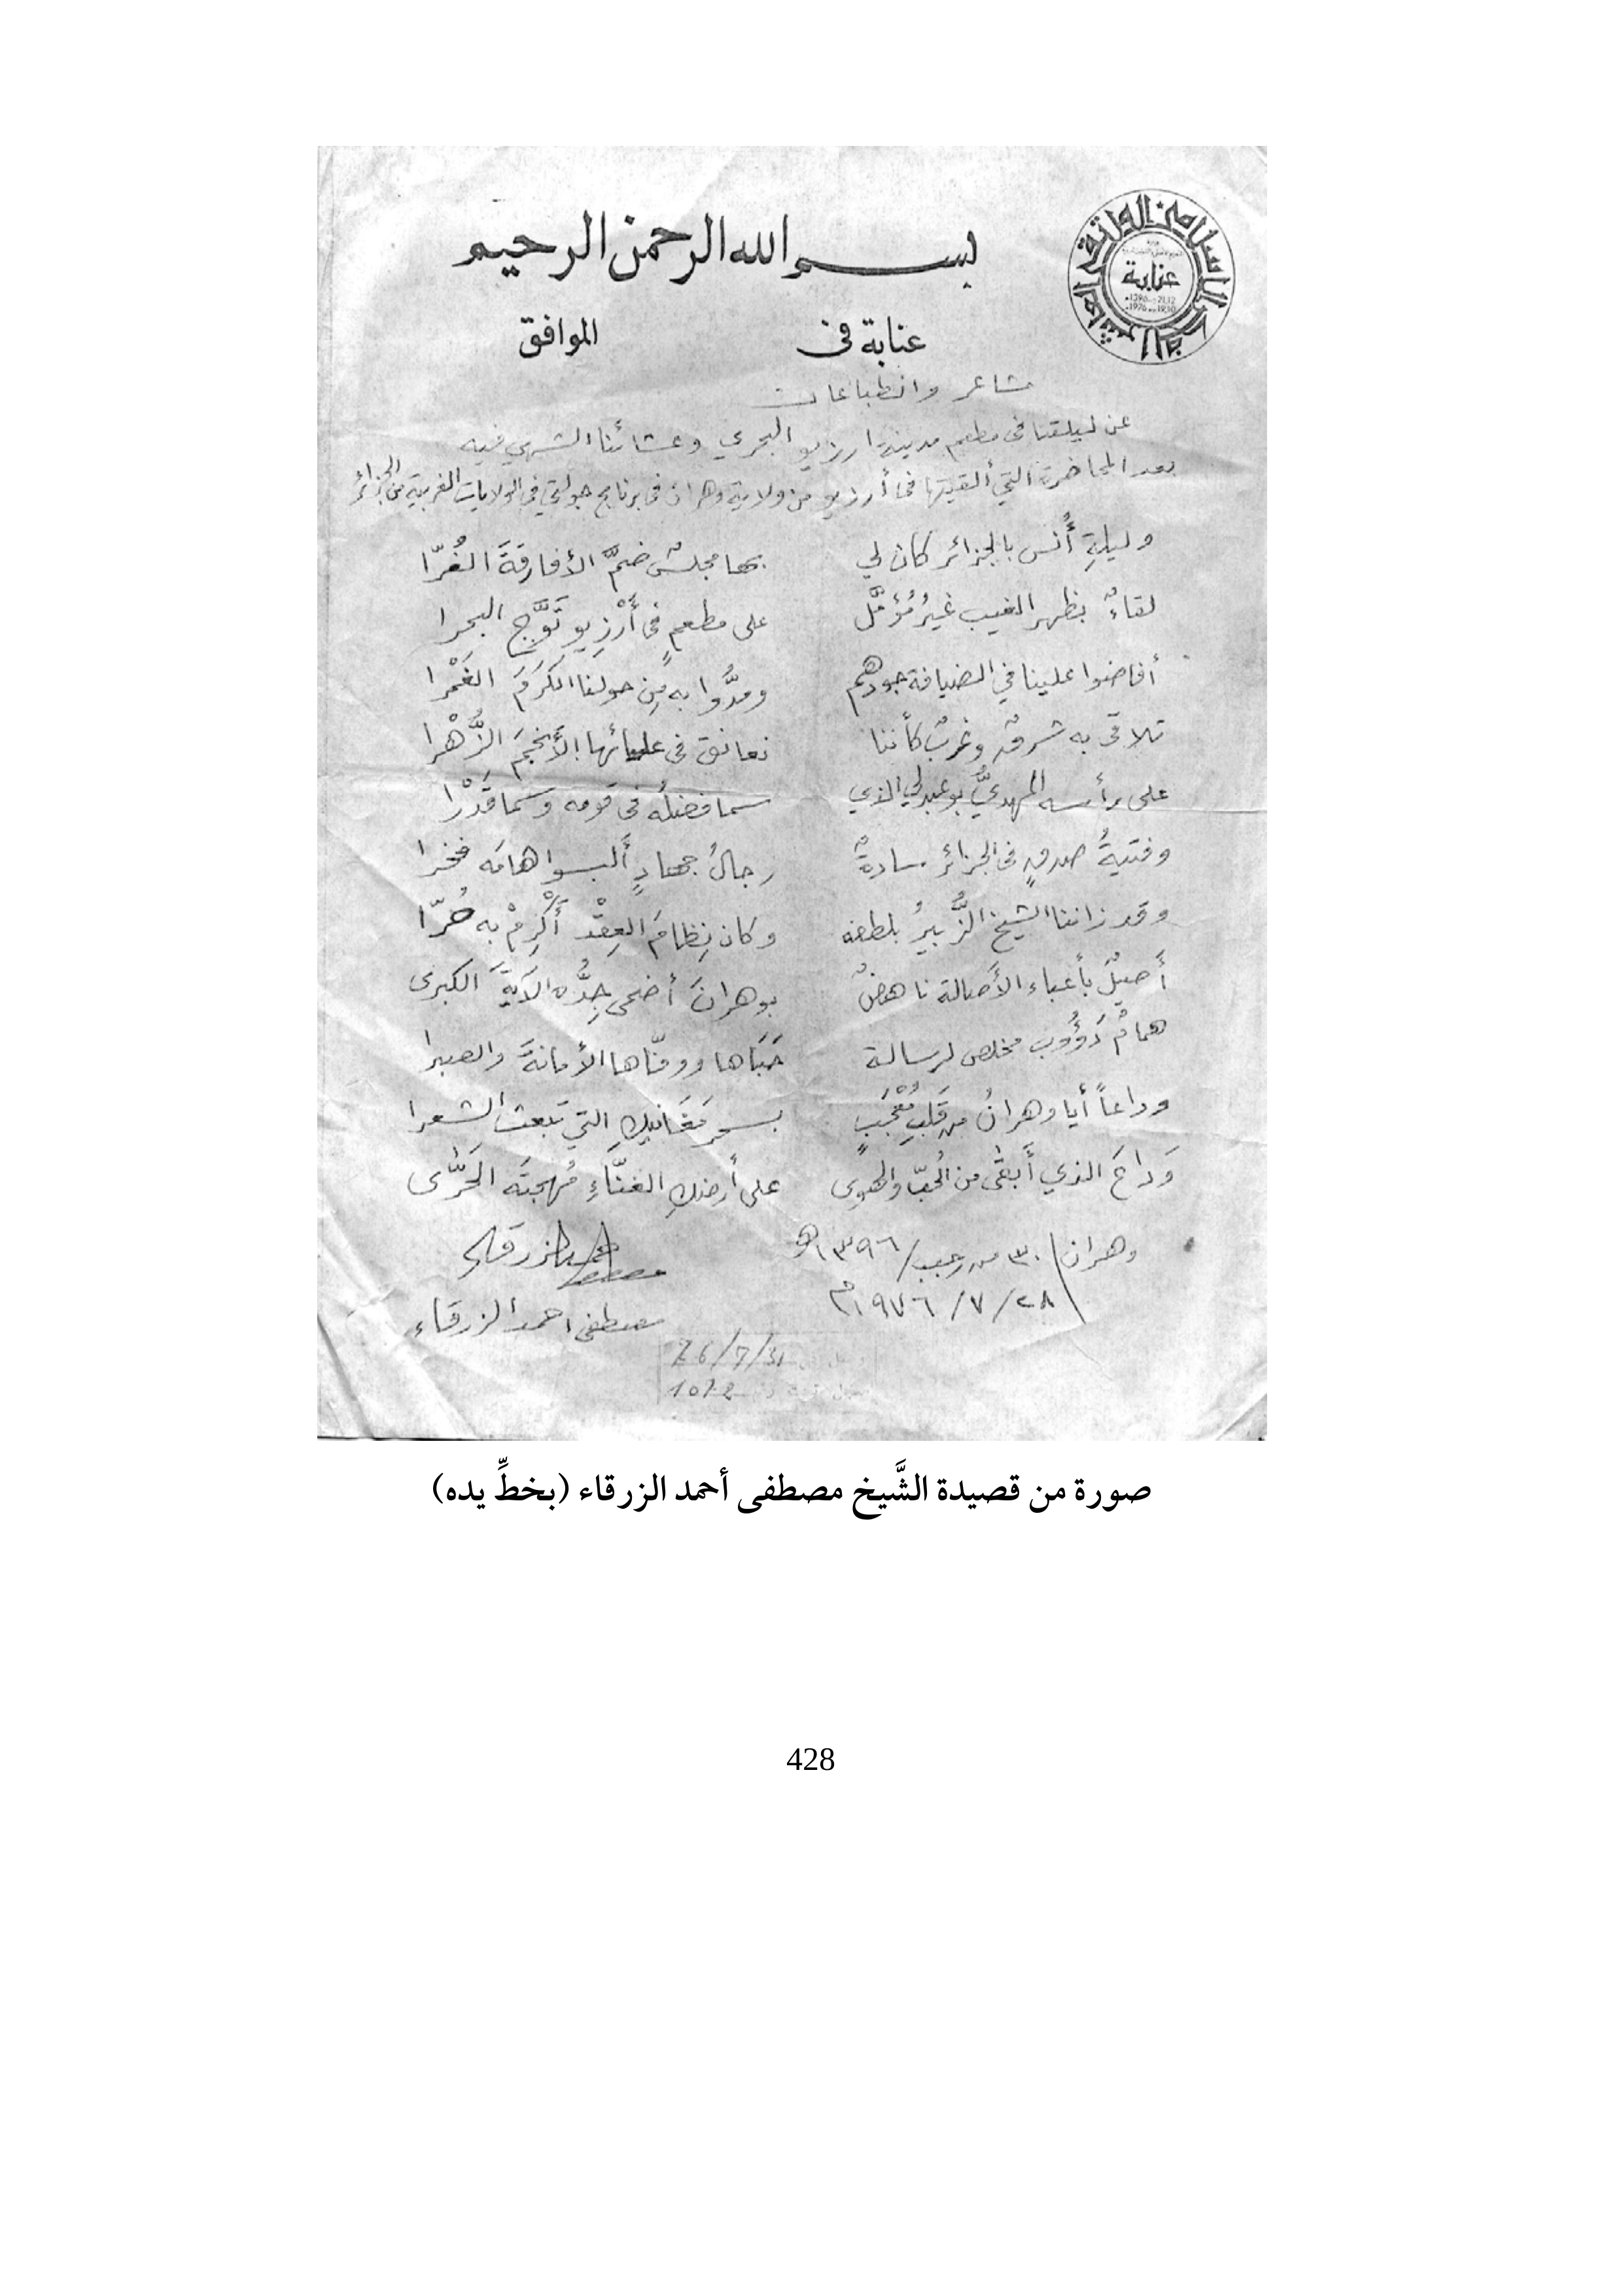 بسم الله الرحمن الرحيم
عنابة
عنابة في الموافق
مشاعر وانطباعات
عن ليلتنا في مطعم مدينة ارزيو البحري وعشائنا الشهي فيه
بعد المحاضرة التي ألقيتها في أرزيو من ولاية وهران في برنامج جولتي في الولايات الغربية من الجزائر
وليلةِ أُنس بالجزائر كان لي بها مجلسٌ ضمَّ الأفارقةَ الغُرّا
لقاءٌ بظهر الغيب غيرُ مُؤمَّل على مطعمٍ في أَرْزِيو تَوَّج البحرا
أفاضوا علينا في الضيافة جودهم ومدُّوا به مِن حولنا الكَرَمَ الغَمْرا
تلاقى به شرقٌ وغربٌ كأننا نعانق في عليائها الأنجمَ الزُّهْرا
على رأسه المهديُّ بوعبدلي الذي سما فضلُه في قومه وسما قَدْرا
وفتيةُ صدقٍ في الجزائر سادةٌ رجالُ جهادٍ أَلبسوا هامَه فخرا
وقد زاننا الشيخ الزُّبيرُ بلطفه وكان نِظامَ العِقْد أَكْرِمْ به حُرّا
أَصيلٌ بأعباء الأَصالة ناهضٌ بوهرانَ أضحى جِدُّه الآيةَ الكبرى
همامٌ دَؤُوب مخلص لرسالة حَبَاها ووفّاها الأمانةَ والصبرا
وداعاً أيا وهرانُ من قَلبِ مُعْجَبٍ بسحر مَغَانيكِ التي تَبعث الشعرا
وَداعَ الذي أَبقَى من الحُبّ والهوى على أرضكِ الغنَّاءِ مُهجتَه الحَرَّى
وهران/ ٣٠ من رجب/ ١٣٩٦هـ
٢٨/ ٧/ ١٩٧٦م
مصطفى احمد الزرقاء
صورة من قصيدة الشَّيخ مصطفى أحمد الزرقاء (بخطِّ يده)
428